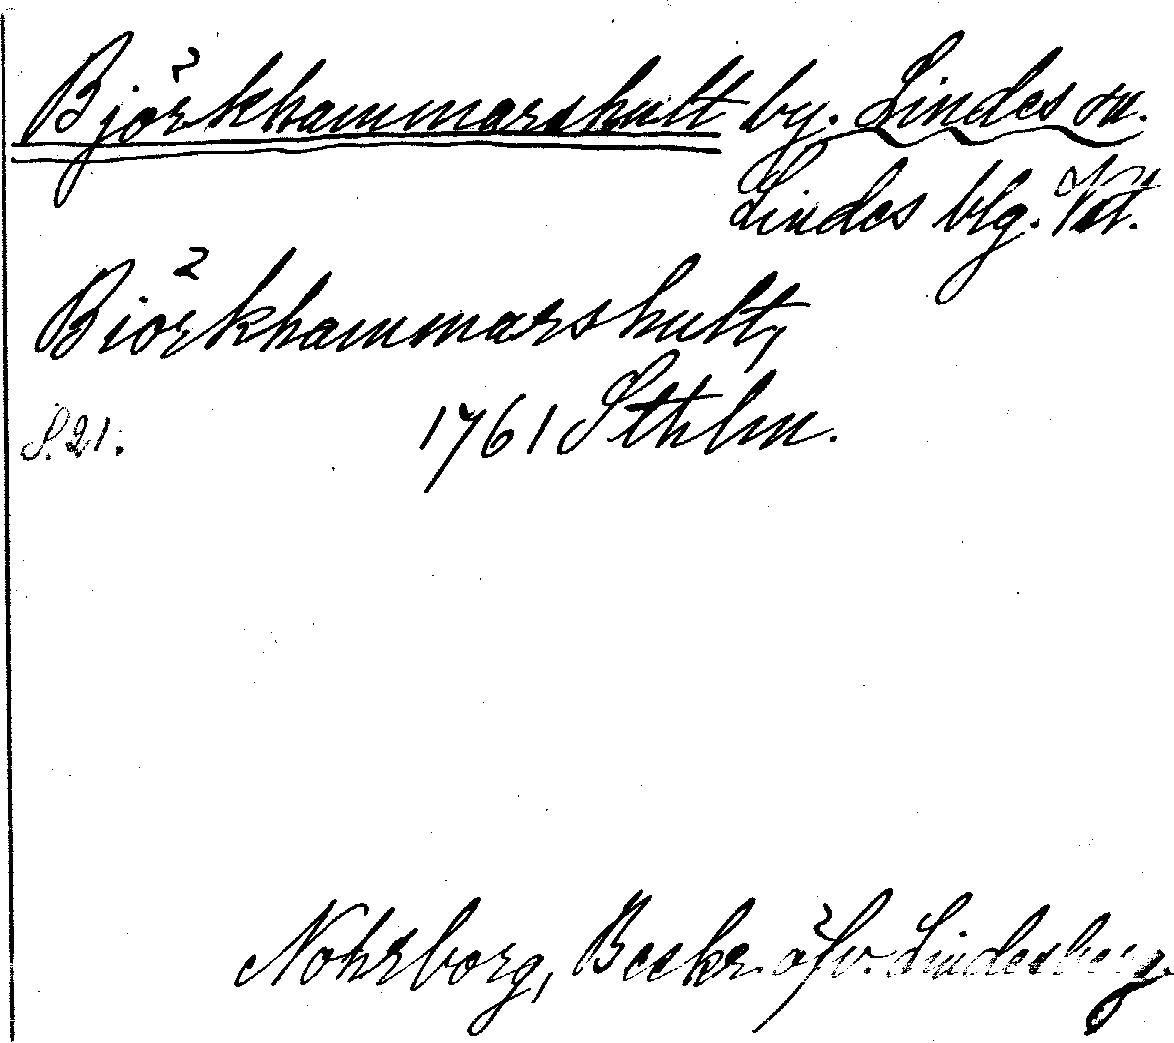 Björkhammarshult by. Lindes sn.
Lindes blg. Vstl.
Biörkhammarshult,
S. 21. 1761 Sthlm.
Nohrborg, Beskr. öfv. Lindesberg.